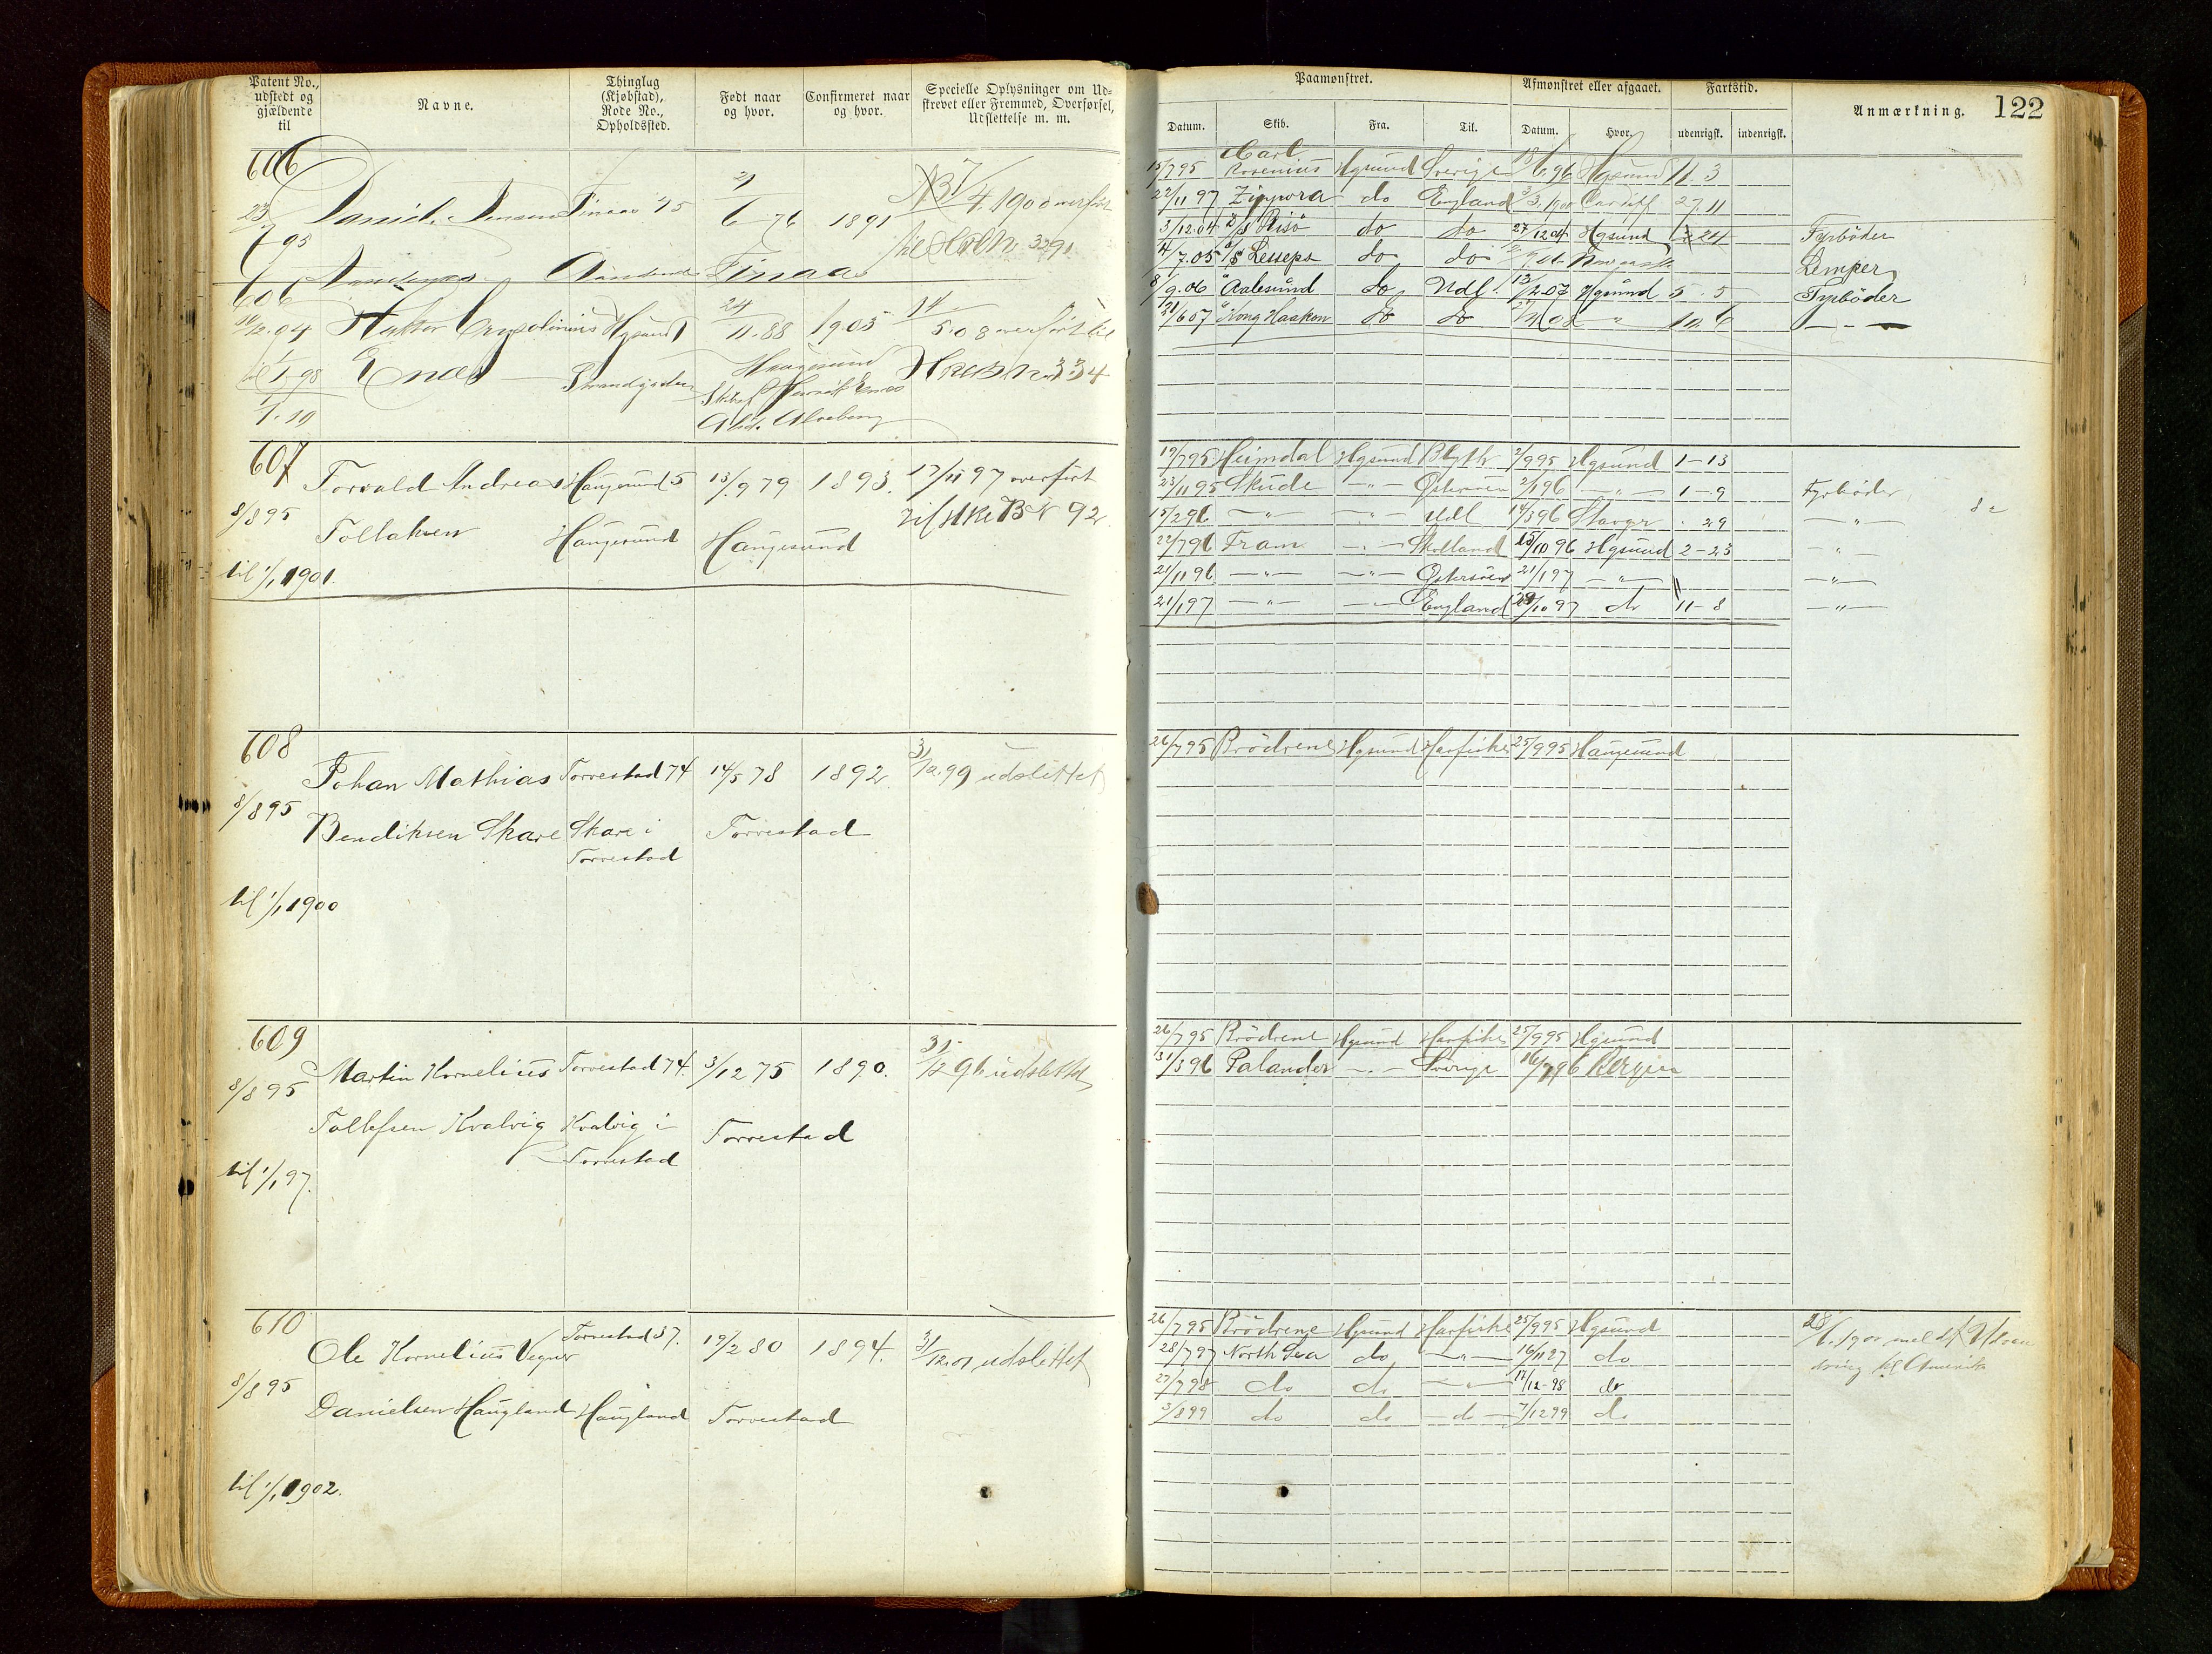 Patent No., udstedt og gjældende til
Navne.
Thinglag (Kjøbstad), Rode No., Opholdssted.
Født naar og hvor.
Confirmeret naar og hvor.
Specielle Oplysninger om Udskrevet eller Fremmed, Overførsel, Udslettelse m. m.
Paamønstret.
Afmønstret eller afgaaet.
Fartstid.
Anmærkning.
122
Datum. Skib. Fra. Til. Datum. Hvor. udenrigsk. indenrigsk.
606
Daniel Jensen
6 76 1891
4.1900 overført
95
606
24
12.04 11.88 1905
5.08 overført til
Enæs
Haugesund
334
15/7 95 Carl Rosenius Hgsund Sverige 96 Hgsund 11. 3
22/11 97 Zippora do England Cardiff 27.11
3/12.04 S/S Risö do do 27/12.04 Hgsund 24 Fyrböder
4/7.05 S/S Lesseps do do Lemper
8/9.06 " Aalesund do Udl. 13/2.07 Hgsund 5. 5 Fyrböder
21/6 07 " Kong Haakon do do 10. 6 — " —
607
Torvald Andreas Haugesund 5 13/9 79 1893. 17/11 97 overført
8/8 95 Tollaksen Haugesund Haugesund 92
til 1/1 1901.
19/7 95 Heimdal Hgsund Blyth 2/9 95 Hgsund 1-13
23/11 95 Skude — " — Østersøen 2/1 96 — " — 1-9 Fyrböder
15/2 96 — " — — " — Udl 14/3 96 Stavgr . 29 — " —
22/7 96 Fram — " — Skotland 15/10 96 Hgsund 2-23 — " —
21/11 96 — " — — " — Østersøen 21/1 97 — " — — " —
21/1 97 — " — — " — England 29/10 97 do 11-8 — " —
608
Johan Mathias Torvestad 74 14/5 78 1892. 31/12.99 udslettet
8/8 95 Bendiksen Skare Skare i Torvestad
Torvestad
til 1/1 1900
26/7 95 Brödrene Hgsund Havfiske 25/9 95 Haugesund
609
Martin Kornelius Torvestad 74. 3/12 75 1890. 31/12 96 udslettet
8/8 95
Tollefsen Kvalvig Kvalvig i Torvestad
Torvestad
til 1/1 97.
26/7 95 Brödrene Hgsund Havfiske 25/9 95 Hgsund
31/3 96 Palander — " — Sverige 16/7 96 Bergen
610
Ole Kornelius Vegner Torvestad 37. 19/2 80 1894. 31/12.01 udslettet
8/8 95
Danielsen Haugland Haugland Torvestad
til 1/1 1902.
26/7 95 Brödrene Hgsund Havfiske 25/9 95 Hgsund
28/7 97 North Sea do — " — 16/11 97 do
27/7 98 do do — " — 17/12-98 do
3/8 99 do do — do — 7/12 99 do
Udvandring til Amerika